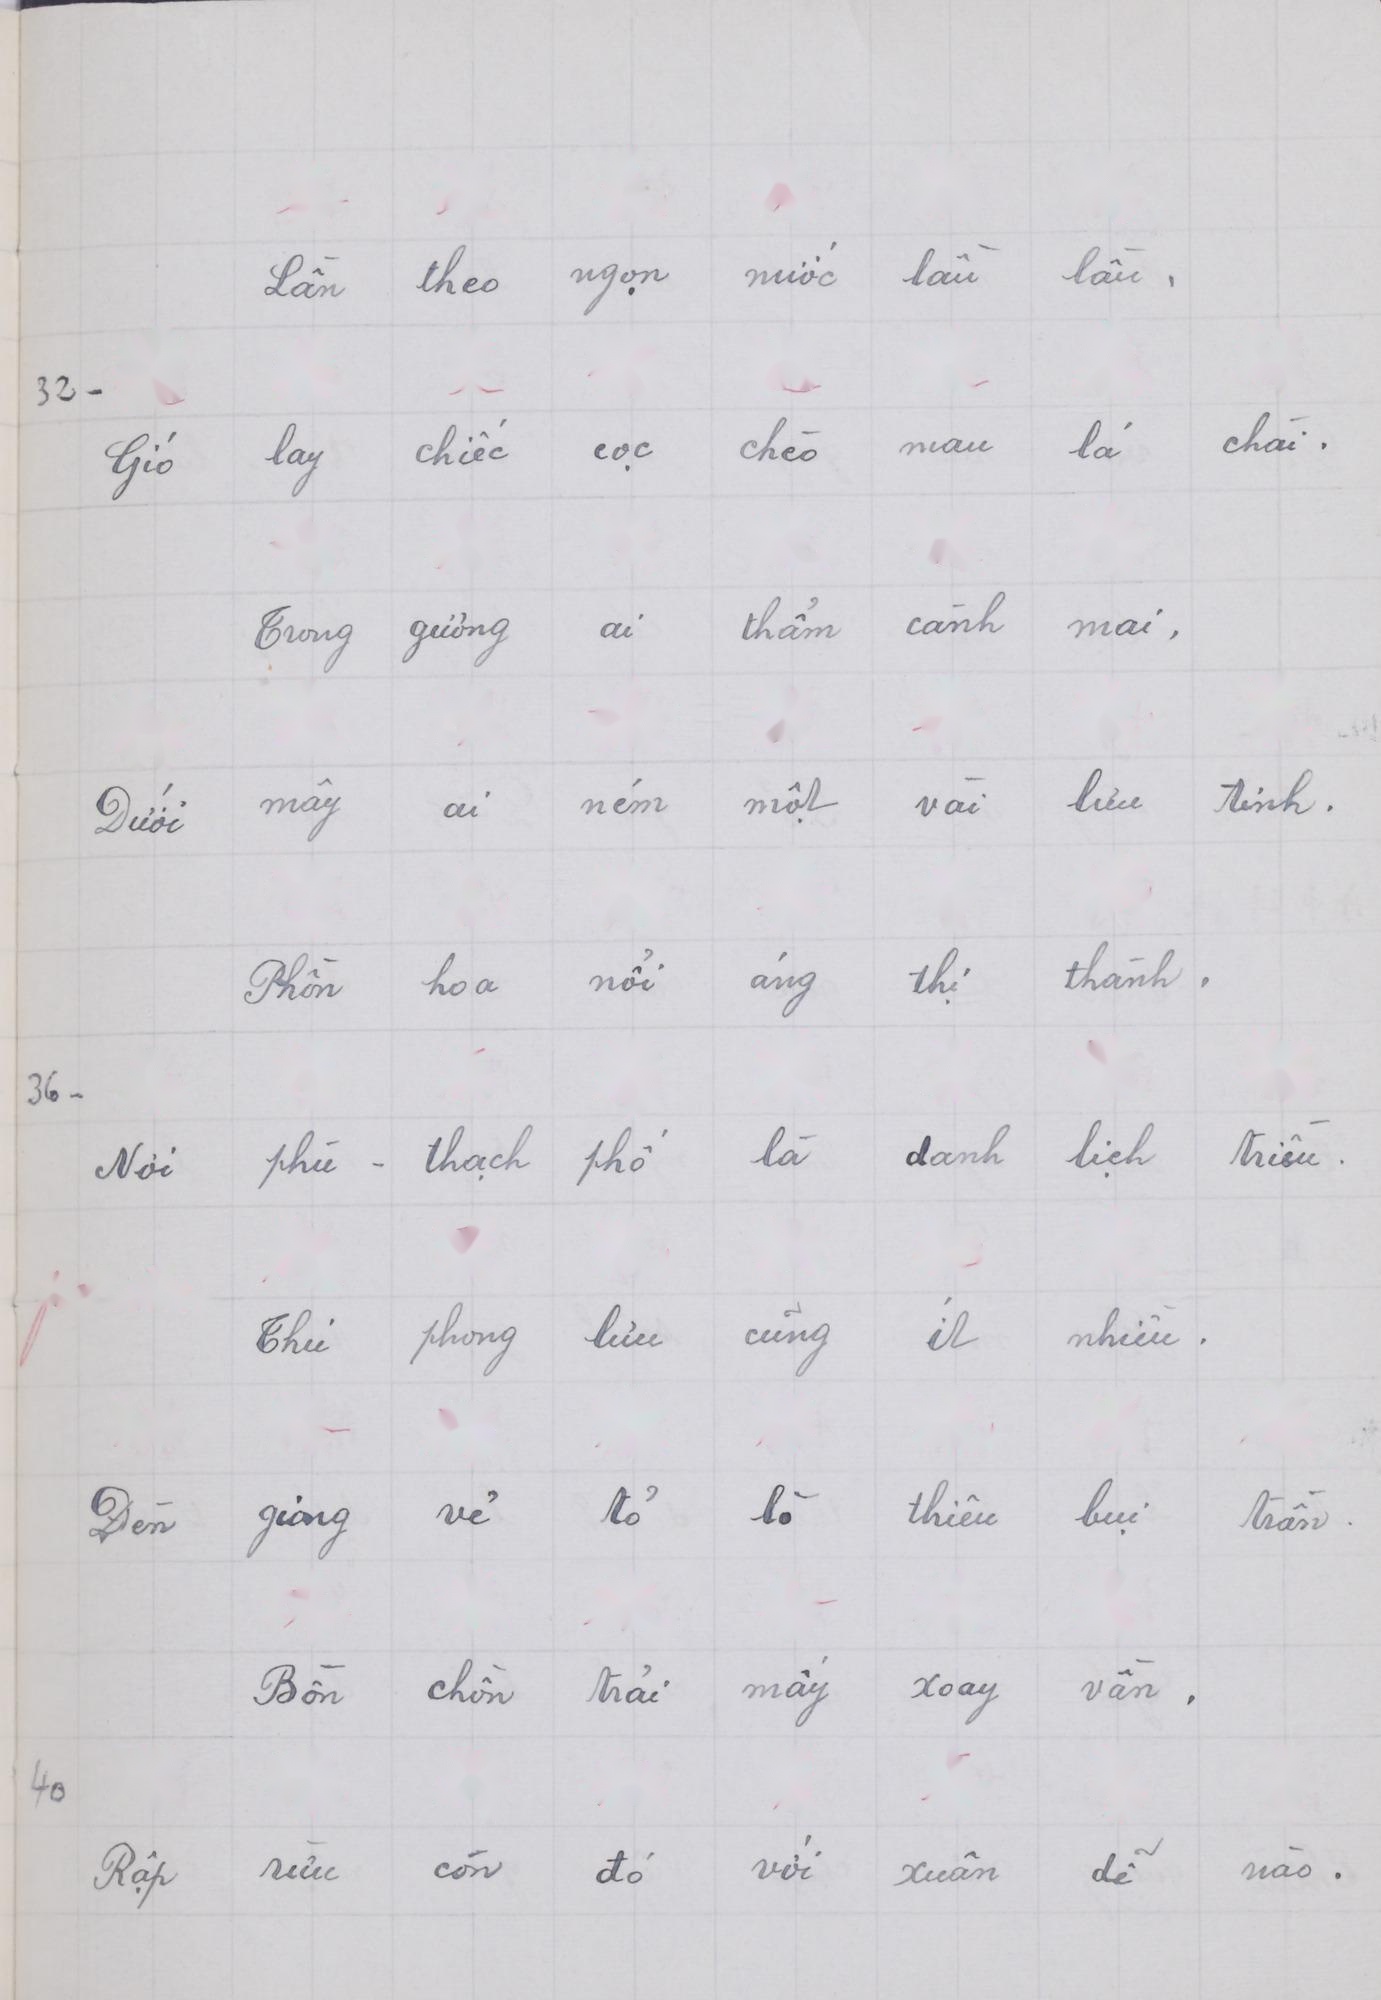 Lần theo ngọn nước làu làu,
32-
Gió lay chiếc cọc chèo mau lá chài.
Trong gương ai thẩm cành mai,
Dưới mây ai ném một vài lưu tinh.
Phồn hoa nổi áng thị thành,
36-
Nơi phù - thạch phố là danh lịch triều.
Thú phong lưu cũng ít nhiều.
Đèn giăng vẻ tỏ lò thiêu bụi trần.
Bồn chồn trải mấy xoay vần,
40
Rập rìu còn đó với xuân dễ nào.